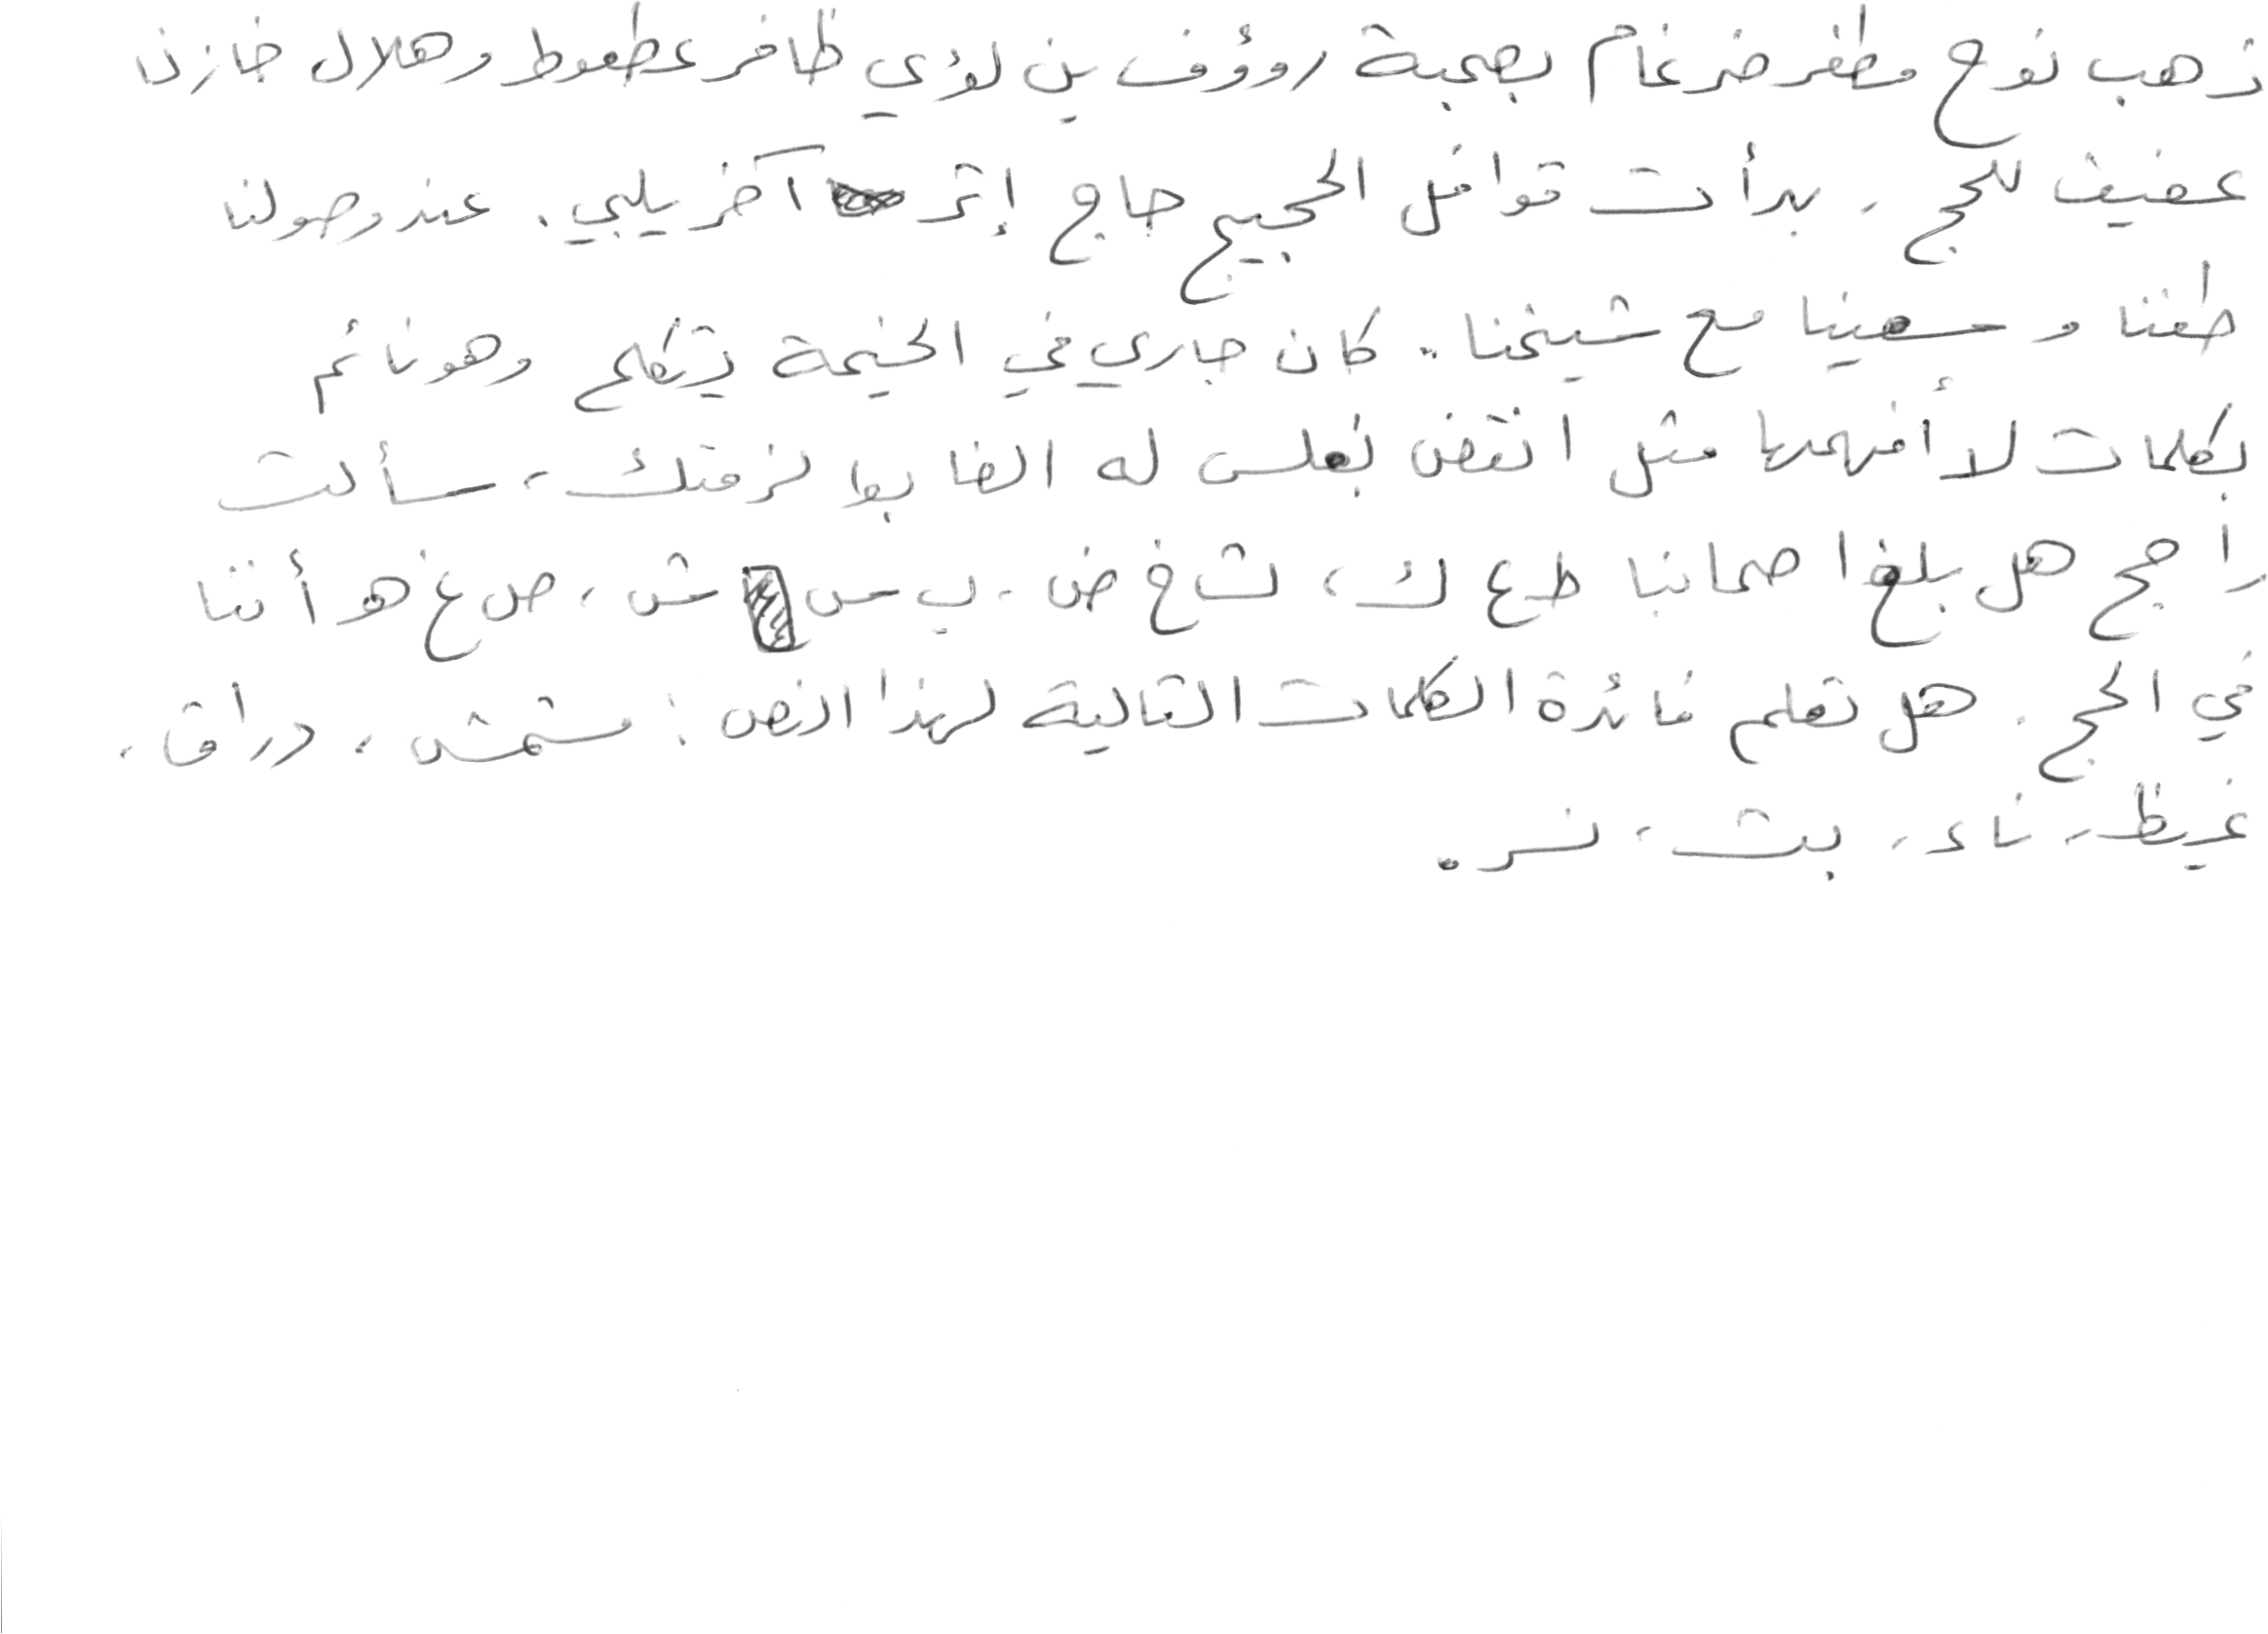 ذهب نوح مظفر ضرغام بصحبة رؤوف بن لؤي ظافر عطعوط وهلال خازن
عفيف للحج . بدأت قوافل الحجيج حاج إثر آخر يلبي . عند وصولنا
طفنا و سعينا مع شيخنا . كان جاري في الخيمة يتكلم وهو نائم
بكلمات لا أفهمها مثل انقض بغلس له الضابط لزمتك ، سألت
راجح هل بلغ اصحابنا ط ع ك ، ث ح ض ، ب س ش ، ص غ هو أننا
في الحج . هل تعلم فائدة الكلمات التالية لهذا النص : مشمش ، دراق ،
غيظ ، ناء ، بث ، نسر .